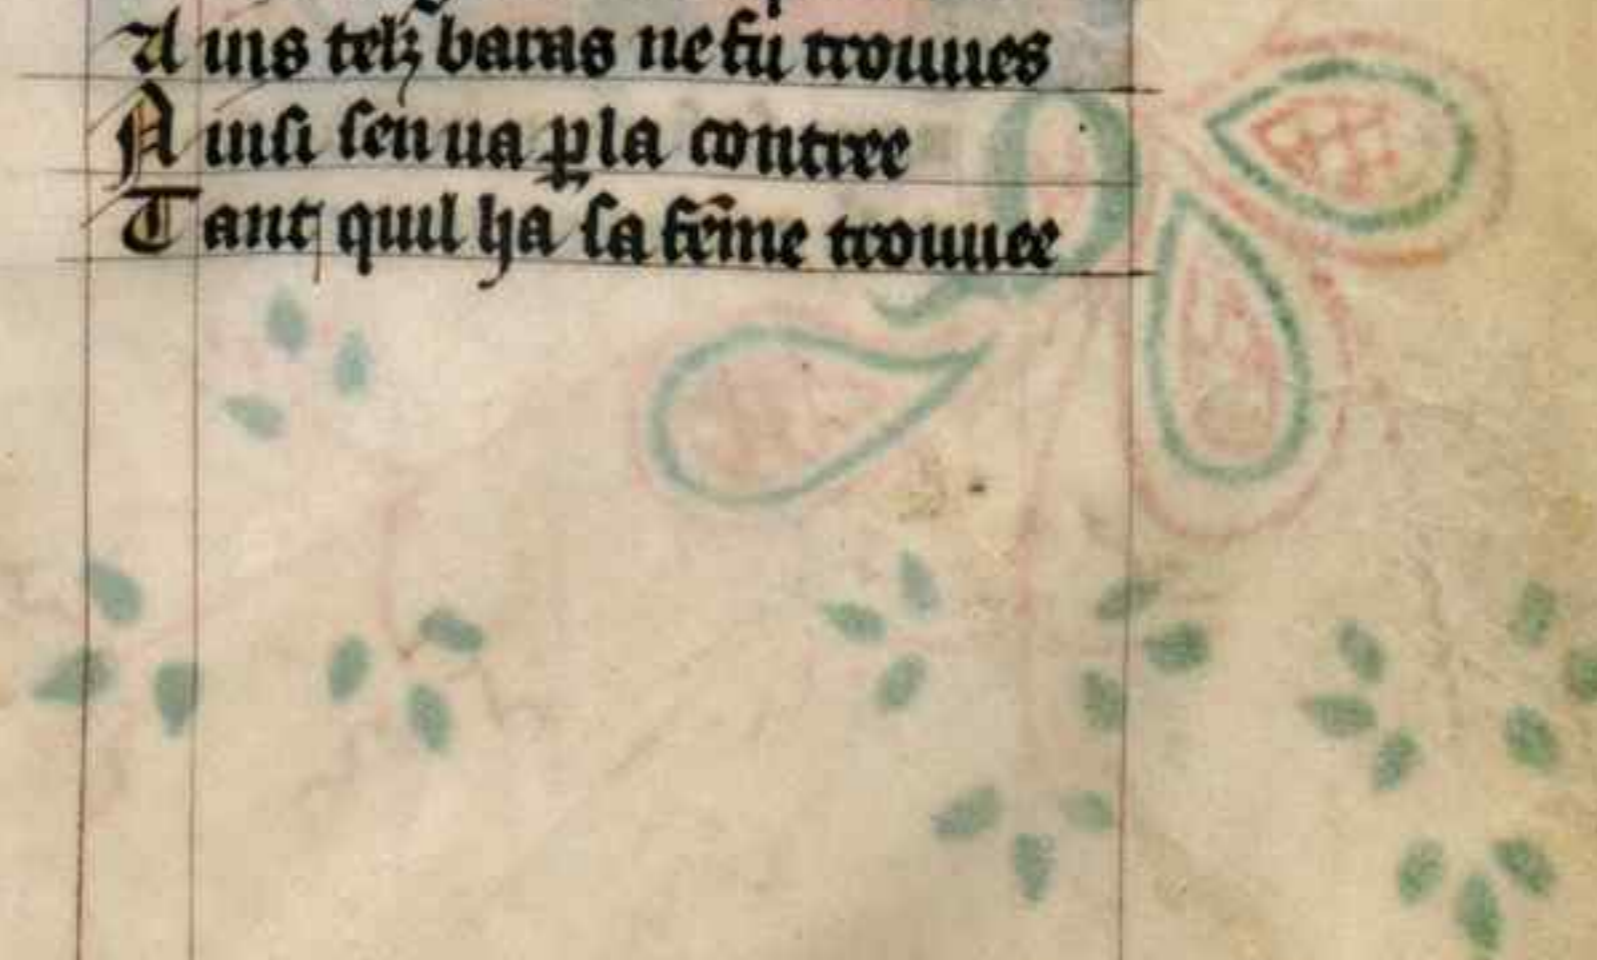 Ains telz baras ne fu trouues
Ainsi sen ua ꝑ la contree
Tant quil ha sa fẽme trouuee